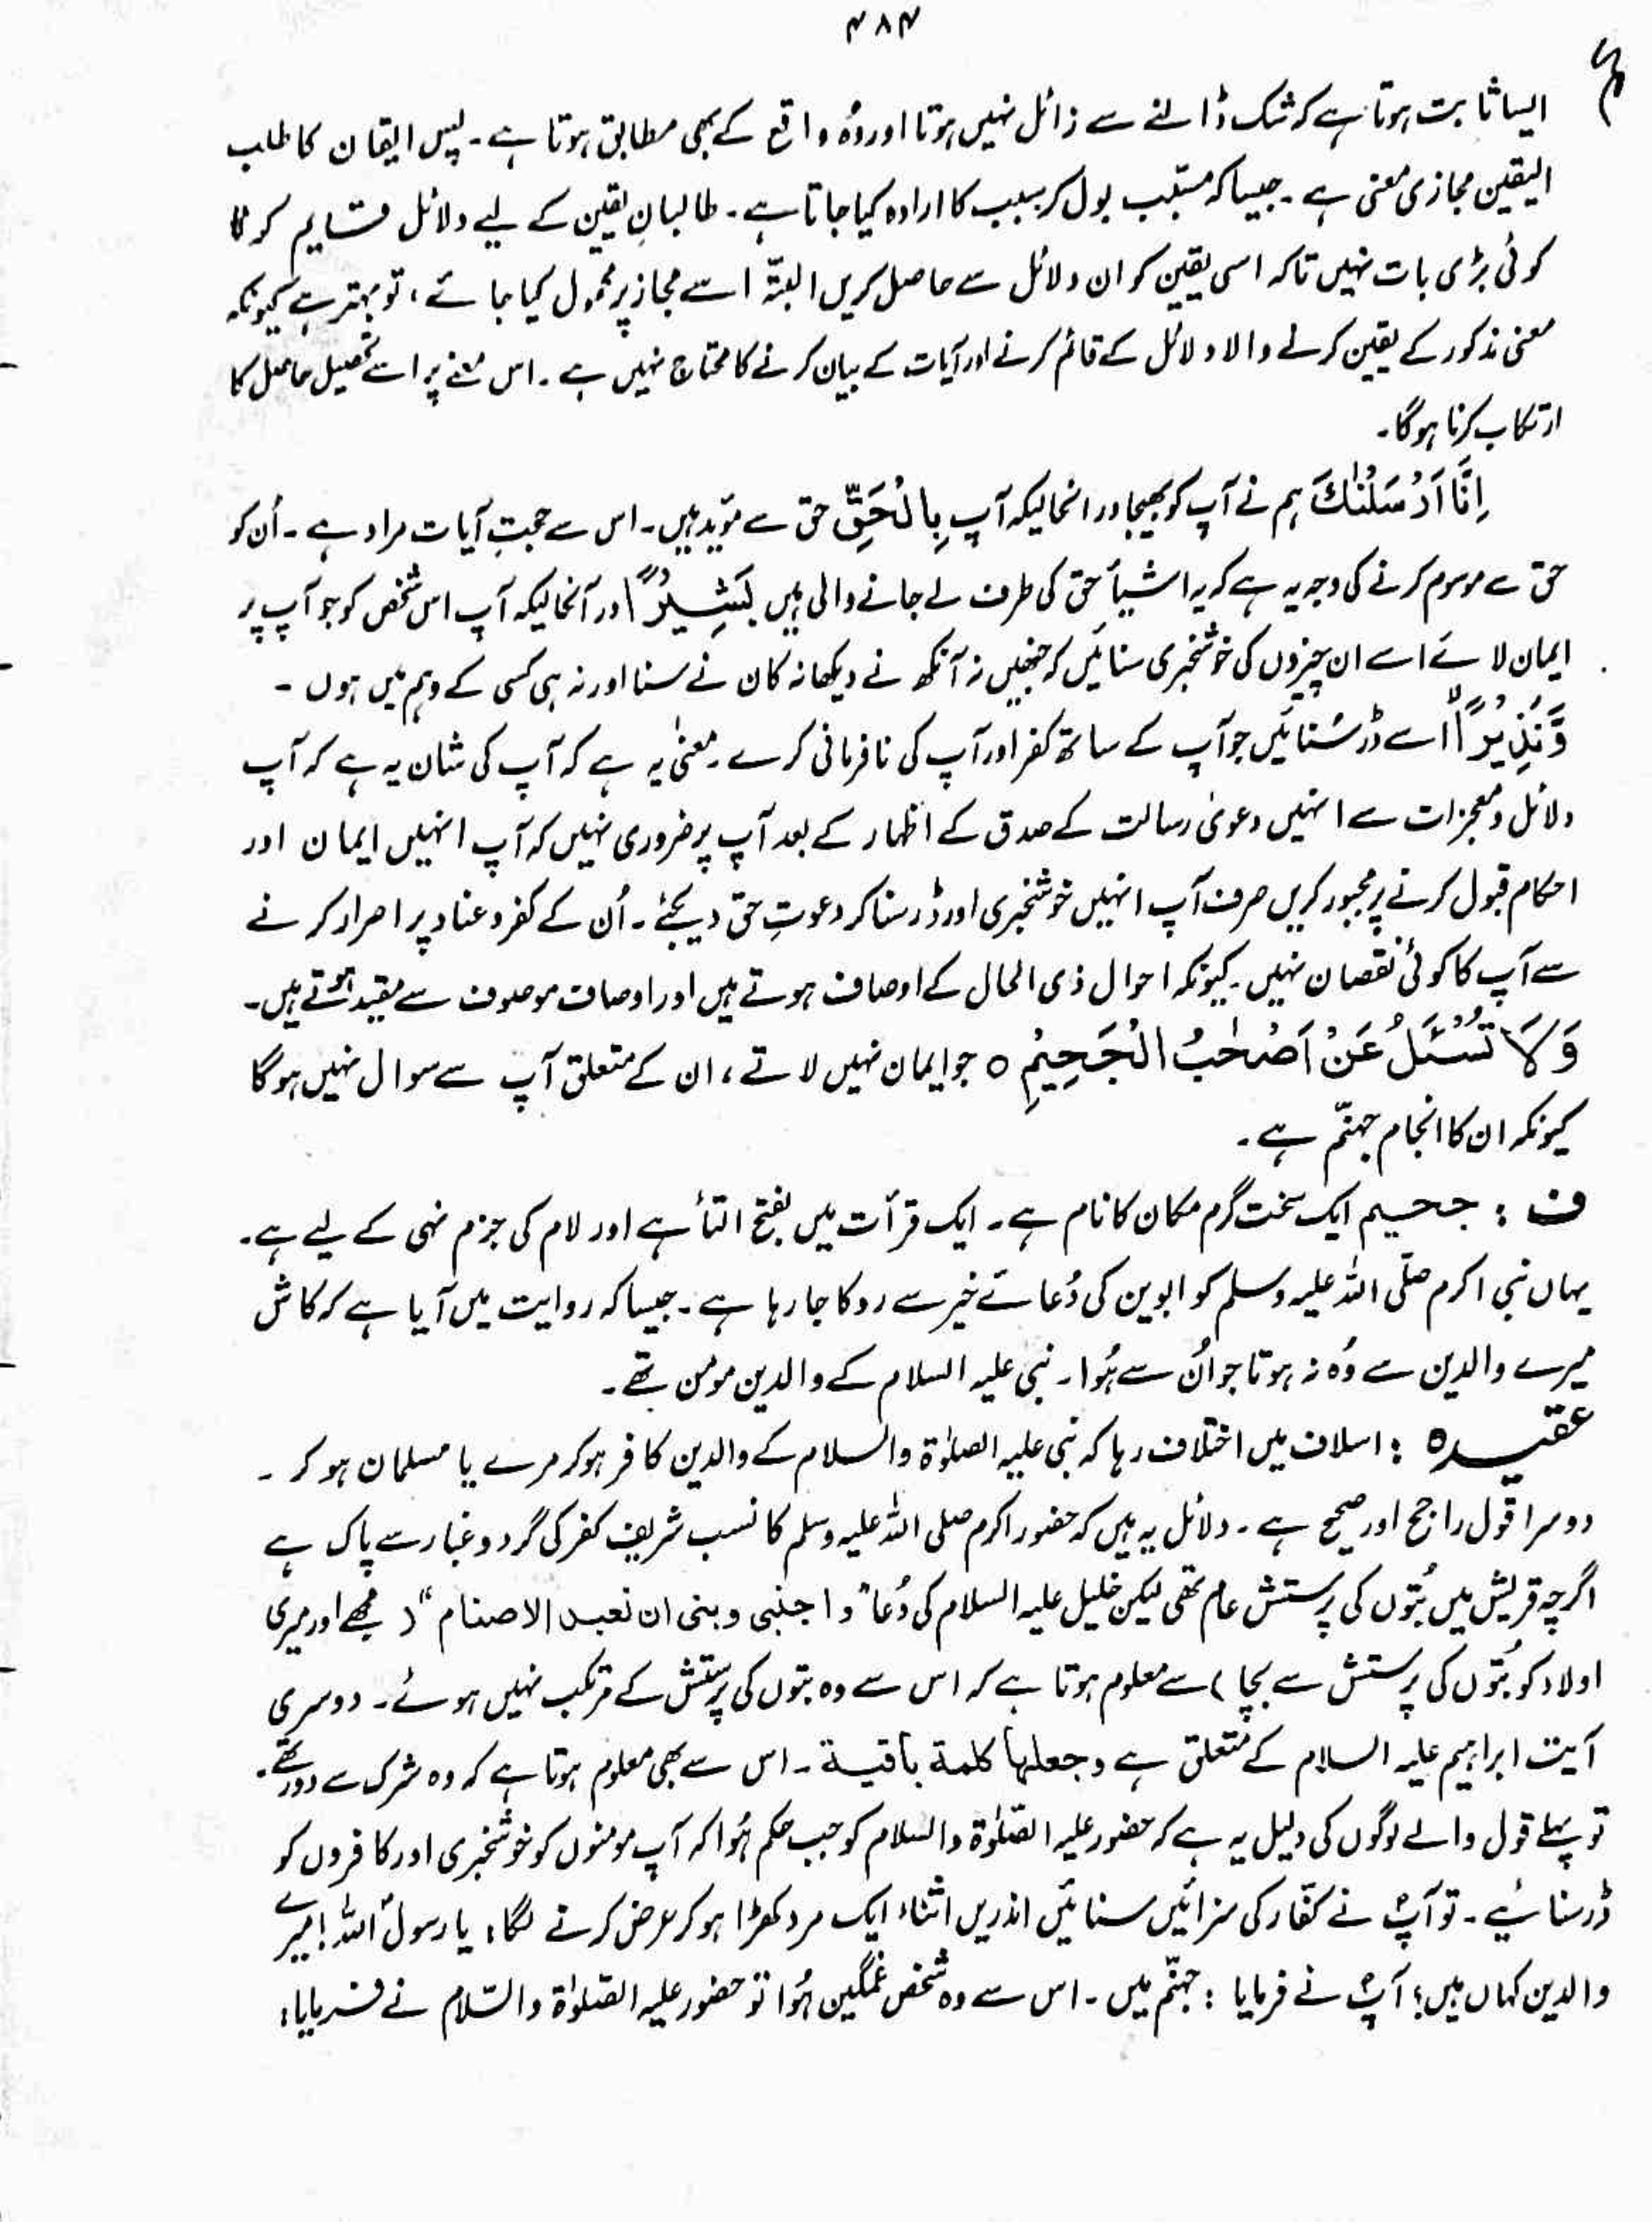 ۴۸۴
ایسا ثابت ہوتا ہے کہ شک ڈالنے سے زائل نہیں ہوتا اور وُہ واقع کے بھی مطابق ہوتا ہے۔ پس ایقان کا طلب
الیقین مجازی معنی ہے۔ جیسا کہ مسبّب بول کر سبب کا ارادہ کیا جاتا ہے۔ طالبانِ یقین کے لیے دلائل قایم کرنا
کوئی بڑی بات نہیں تاکہ اسی یقین کو ان دلائل سے حاصل کریں البتّہ اسے مجاز پر محمول کیا جائے، تو بہتر ہے کیونکہ
معنی مذکور کے یقین کرنے والا دلائل کے قائم کرنے اور آیات کے بیان کرنے کا محتاج نہیں ہے۔ اس معنے پر اسے تحصیل حاصل کا
ارتکاب کرنا ہوگا۔
اِنَّاۤ اَرْسَلْنٰكَ ہم نے آپ کو بھیجا در انحالیکہ آپ بِالْحَقِّ حق سے مؤید ہیں۔ اس سے حجبتِ آیات مراد ہے۔ اُن کو
حق سے موسوم کرنے کی وجہ یہ ہے کہ یہ اشیأ حق کی طرف لے جانے والی ہیں بَشِیْرًا در آنحالیکہ آپ اس شخص کو جو آپ پر
ایمان لائے اسے ان چیزوں کی خوشخبری سنائیں کہ جنھیں نہ آنکھ نے دیکھا نہ کان نے سنا اور نہ ہی کسی کے وہم میں ہوں ۔
وَّ نَذِیْرًا اسے ڈر سُنائیں جو آپ کے ساتھ کفر اور آپ کی نافرمانی کرے۔ معنیٰ یہ ہے کہ آپ کی شان یہ ہے کہ آپ
دلائل و معجزات سے انہیں دعویٰ رسالت کے صدق کے اظہار کے بعد آپ پر ضروری نہیں کہ آپ انہیں ایمان اور
احکام قبول کرنے پر مجبور کریں صرف آپ انہیں خوشخبری اور ڈر سنا کر دعوتِ حق دیجئے۔ اُن کے کفر و عناد پر اصرار کرنے
سے آپ کا کوئی نقصان نہیں۔ کیونکہ احوال ذی الحال کے اوصاف ہوتے ہیں اور اوصاف موصوف سے مقید ہوتے ہیں۔
وَ لَا تُسْـَٔلُ عَنْ اَصْحٰبِ الْجَحِیْمِ ○ جو ایمان نہیں لاتے، ان کے متعلق آپ سے سوال نہیں ہوگا
کیونکہ ان کا انجام جہنّم ہے۔
ف : جحیم ایک سخت گرم مکان کا نام ہے۔ ایک قرأت میں بفتح التأ ہے اور لام کی جزم نہی کے لیے ہے۔
یہاں نبی اکرم صلّی اللہ علیہ وسلم کو ابوین کی دُعائے خیر سے روکا جا رہا ہے۔ جیسا کہ روایت میں آیا ہے کہ کاش
میرے والدین سے وُہ نہ ہوتا جو اُن سے ہُوا۔ نبی علیہ السلام کے والدین مومن تھے۔
عقیدہ : اسلاف میں اختلاف رہا کہ نبی علیہ الصلوٰۃ والسلام کے والدین کافر ہو کر مرے یا مسلمان ہو کر ۔
دوسرا قول راجح اور صحیح ہے۔ دلائل یہ ہیں کہ حضور اکرم صلی اللہ علیہ وسلم کا نسب شریف کفر کی گرد و غبار سے پاک ہے
اگرچہ قریش میں بُتوں کی پرستش عام تھی لیکن خلیل علیہ السلام کی دُعا "و اجنبی وبنی ان نعبد الاصنام" (مجھے اور میری
اولاد کو بُتوں کی پرستش سے بچا) سے معلوم ہوتا ہے کہ اس سے وہ بتوں کی پرستش کے مرتکب نہیں ہوئے۔ دوسری
آیت ابراہیم علیہ السلام کے متعلق ہے وجعلہا کلمۃ باقیۃ۔ اس سے بھی معلوم ہوتا ہے کہ وہ شرک سے دور تھے۔
تو پہلے قول والے لوگوں کی دلیل یہ ہے کہ حضور علیہ الصّلوٰۃ والسلام کو جب حکم ہُوا کہ آپ مومنوں کو خوشخبری اور کافروں کو
ڈر سنائیے۔ تو آپؐ نے کفّار کی سزائیں سنائیں اندریں اثناء ایک مرد کھڑا ہو کر عرض کرنے لگا: یا رسول اللہ! میرے
والدین کہاں ہیں؟ آپؐ نے فرمایا : جہنّم میں۔ اس سے وہ شخص غمگین ہُوا تو حضور علیہ الصّلوٰۃ والسّلام نے فرمایا: